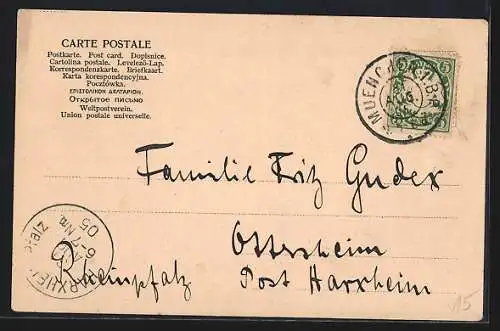 CARTE POSTALE
Postkarte. Post card. Dopisnice.
Cartolina postale. Levelező-Lap.
Korrespondenskarte. Briefkaart.
Karta korespondencyjna.
Pocztówka.
ΕΠΙΣΤΟΛΙΚΟΝ ΔΕΛΤΑΡΙΟΝ.
Открытое письмо
Weltpostverein.
Union postale universelle.
5
MUENCHEN
AUG.
Familie Fritz Guder
Ottersheim
Rheinpfalz Post Harxheim
6-7 Nm.
05
15